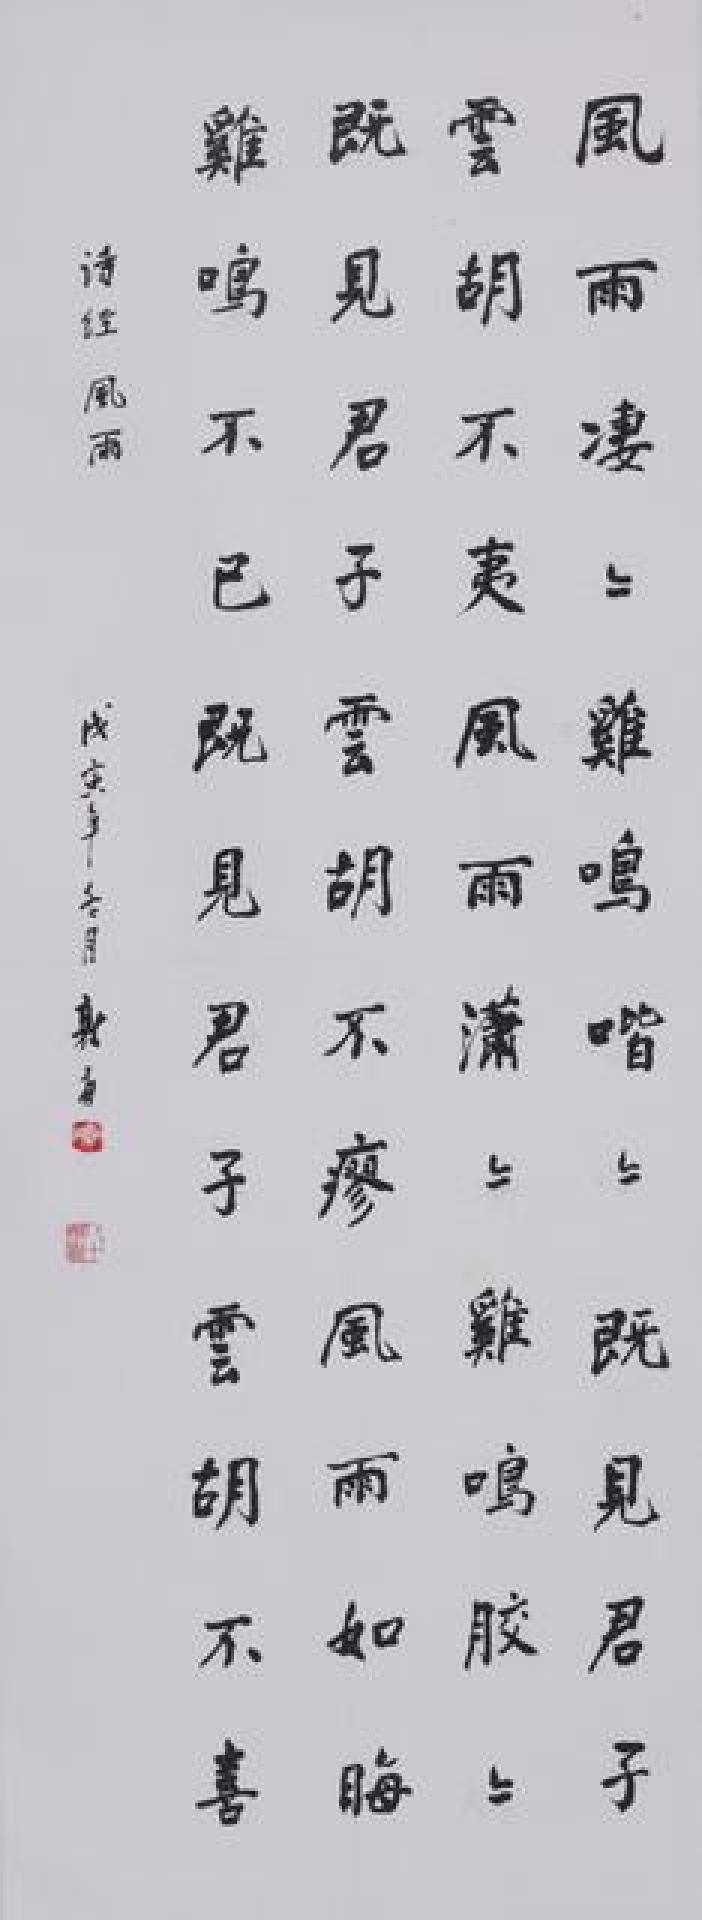 風雨凄〻雞鳴喈〻既見君子
雲胡不夷風雨瀟〻雞鳴膠〻
既見君子雲胡不瘳風雨如晦
雞鳴不已既見君子雲胡不喜
诗经風雨
戊寅年冬月